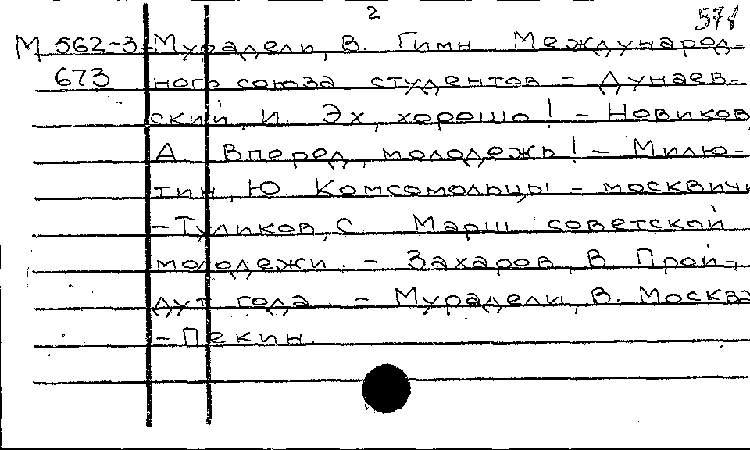 2
578
М 562-3 Мурадели, В. Гимн Международ-
673 ного союза студентов – Дунаев-
ский, И. Эх, хорошо! – Новиков,
А. Вперед, молодежь! – Милю-
тин, Ю. Комсомольцы – москвичи
– Туликов, С. Марш советской
молодежи. – Захаров, В. Прой-
дут года. – Мурадели, В. Москва
– Пекин.